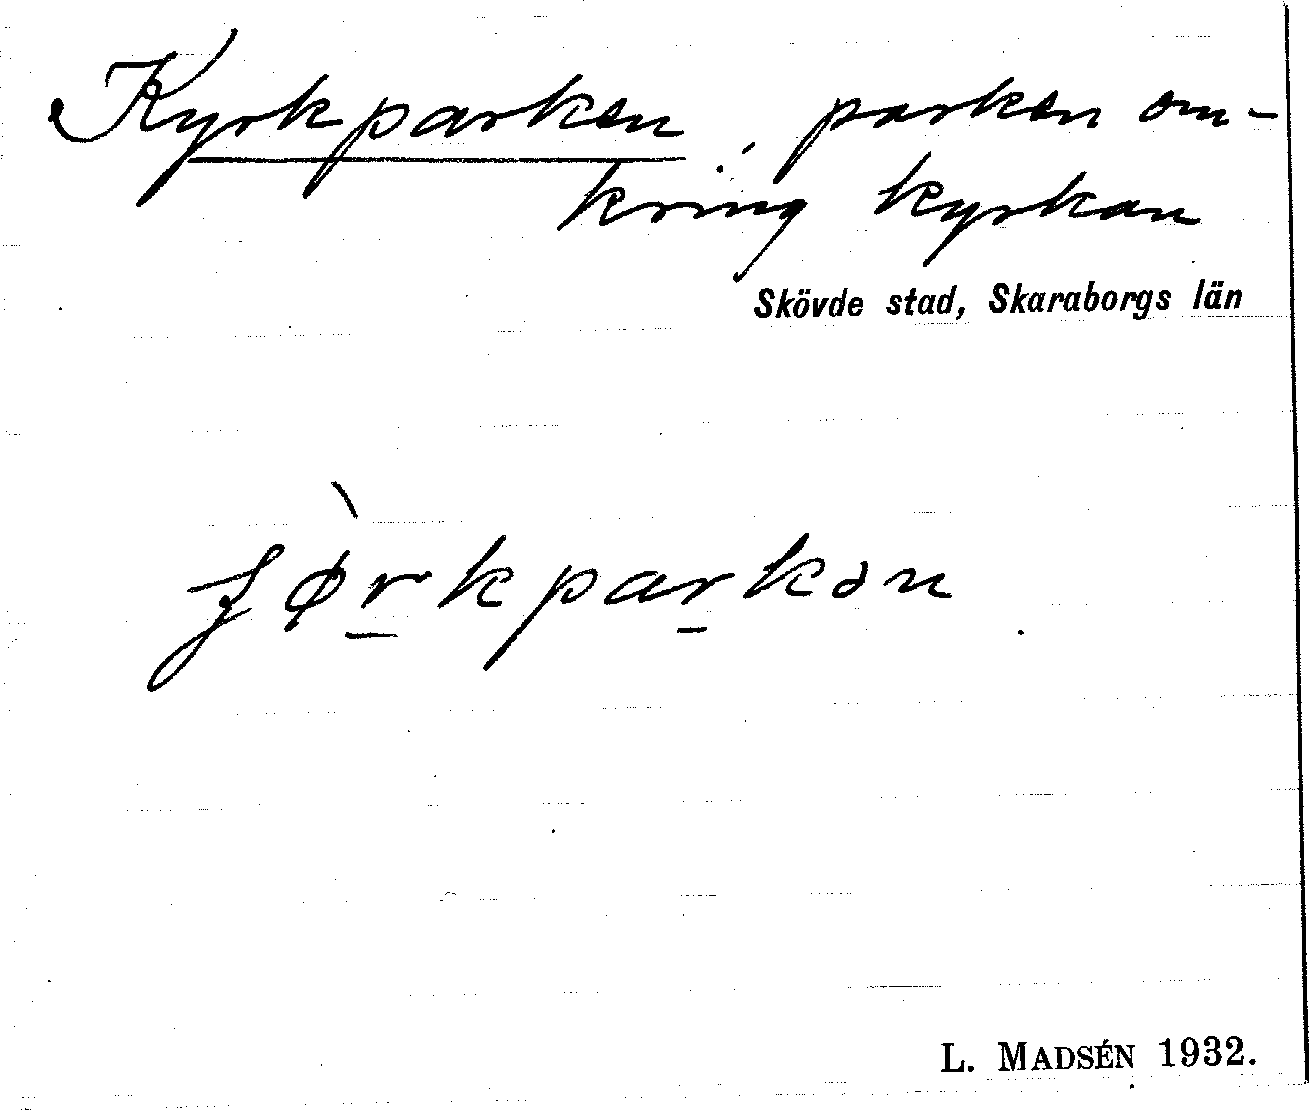 Kyrkparken, parken om-
kring kyrkan
Skövde stad, Skaraborgs län
ʃø̀r̲kpar̲kən
L. MADSÉN 1932.